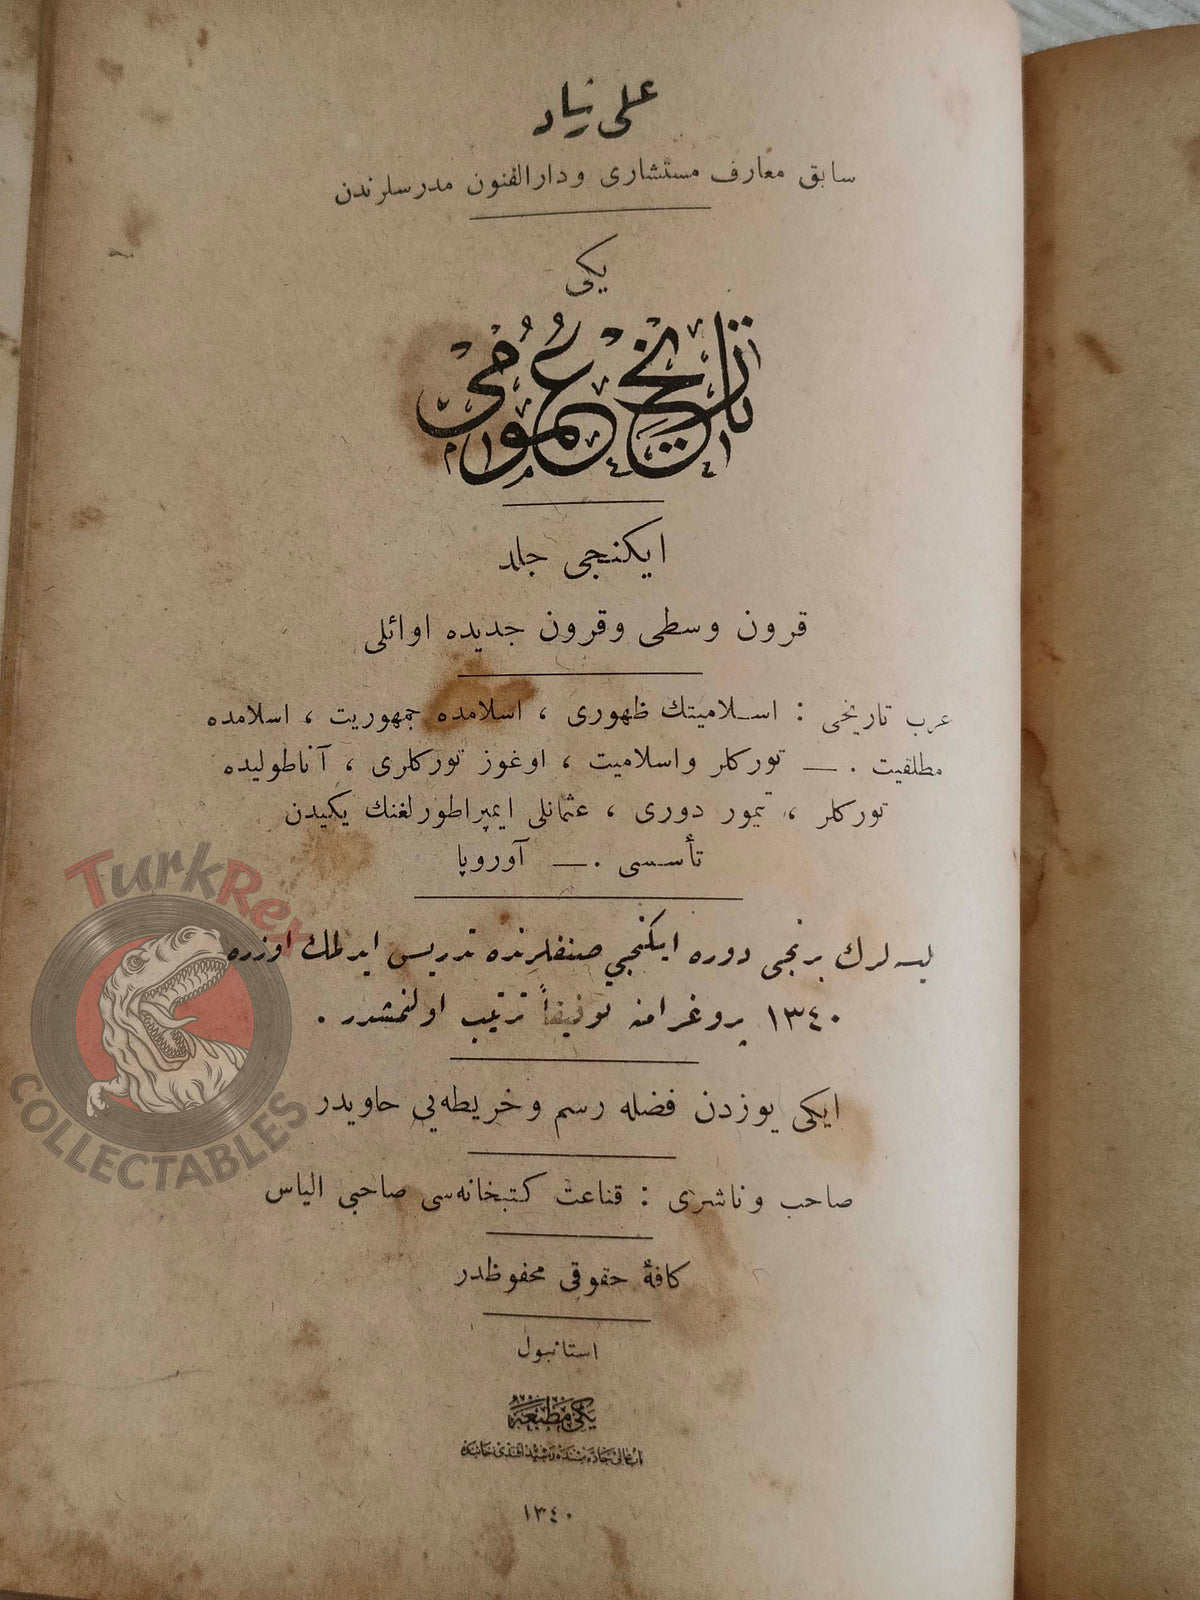 علی زیاد
سابق معارف مستشاری و دارالفنون مدرسلرندن
یکی
تاریخ عمومی
ایکنجی جلد
قرون وسطی وقرون جدیده اوائلی
عرب تاریخی : اسلامیتك ظهوری ، اسلامده جمهوریت ، اسلامده
مطلقیت . — تورکلر واسلامیت ، اوغوز تورکلری ، آناطولیده
تورکلر ، تیمور دوری ، عثمانلی ایمپراطورلغنك یکیدن
تأسسی . — آوروپا
لیسه لرك برنجی دوره ایکنجی صنفلرنده تدریس ایدلمك اوزره
١٣٤٠ پروغرامنه توفیقاً ترتیب اولنمشدر .
ایکی یوزدن فضله رسم و خریطه‌یی حاویدر
صاحب و ناشری : قناعت کتبخانه‌سی صاحبی الیاس
کافۀ حقوقی محفوظدر
استانبول
یکی مطبعه
باب عالی جاده‌سنده رشید افندی خاننده
١٣٤٠
TurkRex
COLLECTABLES